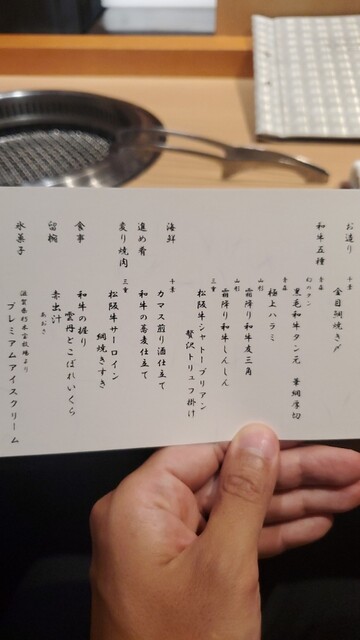 お造り
千葉
金目鯛焼き〆
和牛五種
青森
幻のタン
黒毛和牛タン元 華網厚切
青森
極上ハラミ
山形
霜降り和牛友三角
山形
霜降り和牛しんしん
三重
松阪牛シャトーブリアン
贅沢トリュフ掛け
海鮮
千葉
カマス煎り酒仕立て
進め肴
和牛の蕎麦仕立て
変り焼肉
三重
松阪牛サーロイン
網焼きすき
食事
和牛の握り
雲丹とこぼれいくら
留椀
赤出汁
あおさ
氷菓子
滋賀香杉本宮牧場より
プレミアムアイスクリーム